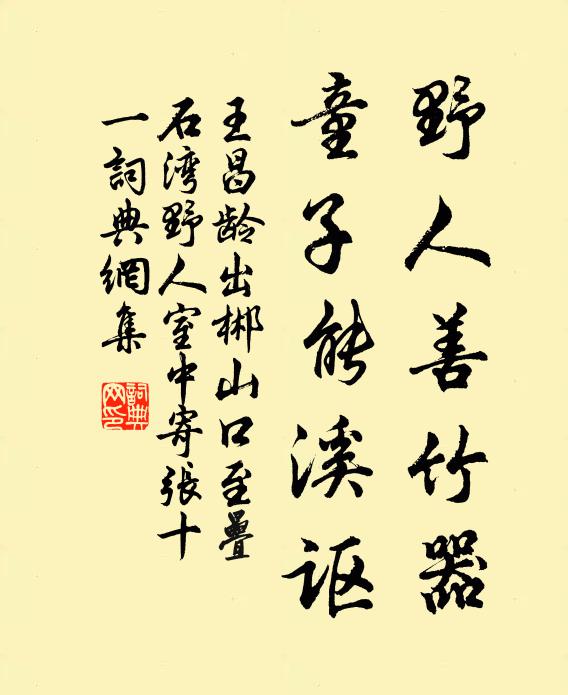 野人善竹器
童子能溪讴
王昌龄出郴山口至疊
石湾野人室中寄張十
一詞典網集
詞典網印